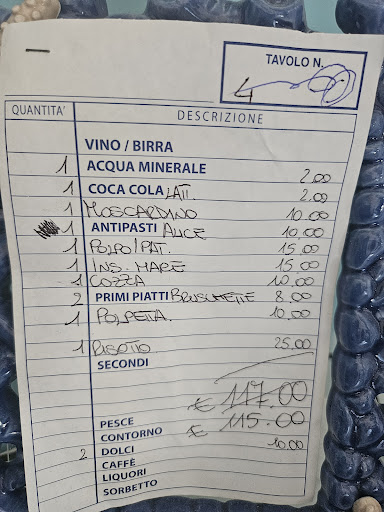 TAVOLO N.
4
QUANTITA' DESCRIZIONE
VINO / BIRRA
1 ACQUA MINERALE 2.00
1 COCA COLA LATT. 2.00
1 MOSCARDINO 10.00
1 ANTIPASTI ALICE 10.00
1 POLPO/PAT. 15.00
1 INS. MARE 15.00
1 COZZA 10.00
2 PRIMI PIATTI BRUSCHETTE 8.00
1 POLPETTA 10.00
1 RISOTTO 25.00
SECONDI
€ 117.00
PESCE € 115.00
CONTORNO
2 DOLCI 10.00
CAFFÈ
LIQUORI
SORBETTO